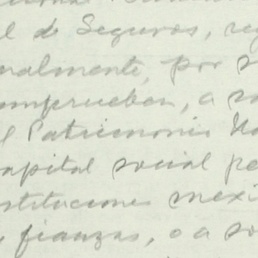 l de Seguros, reg
oralmente, por s
comprueban, a so
l Patrimonio Na
capital social pe
stituciones mexi
y fianzas, o a so